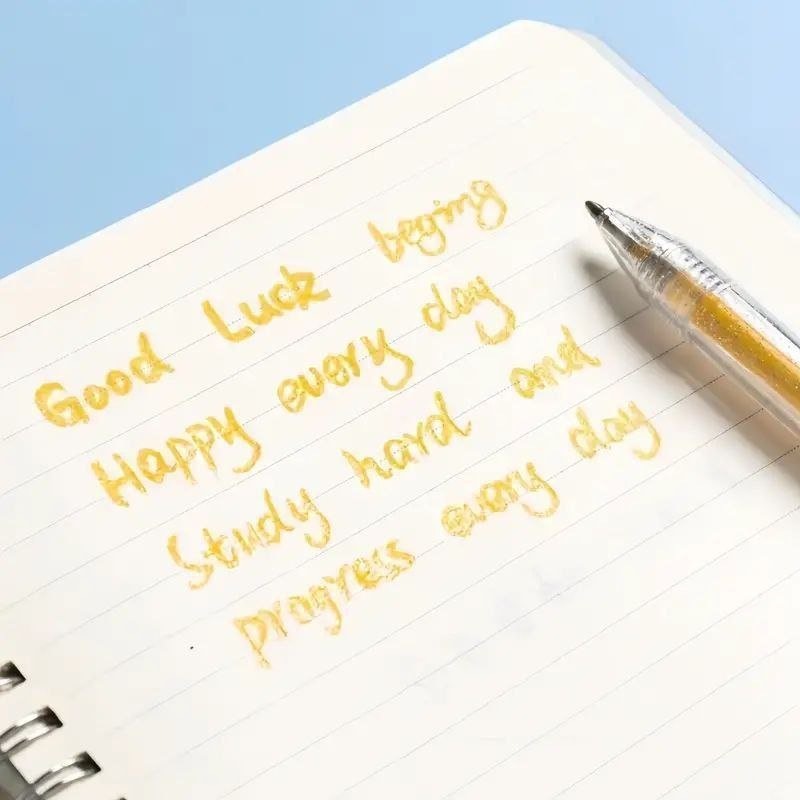 Good Luck beging
Happy every day
Study hard and
progress every day